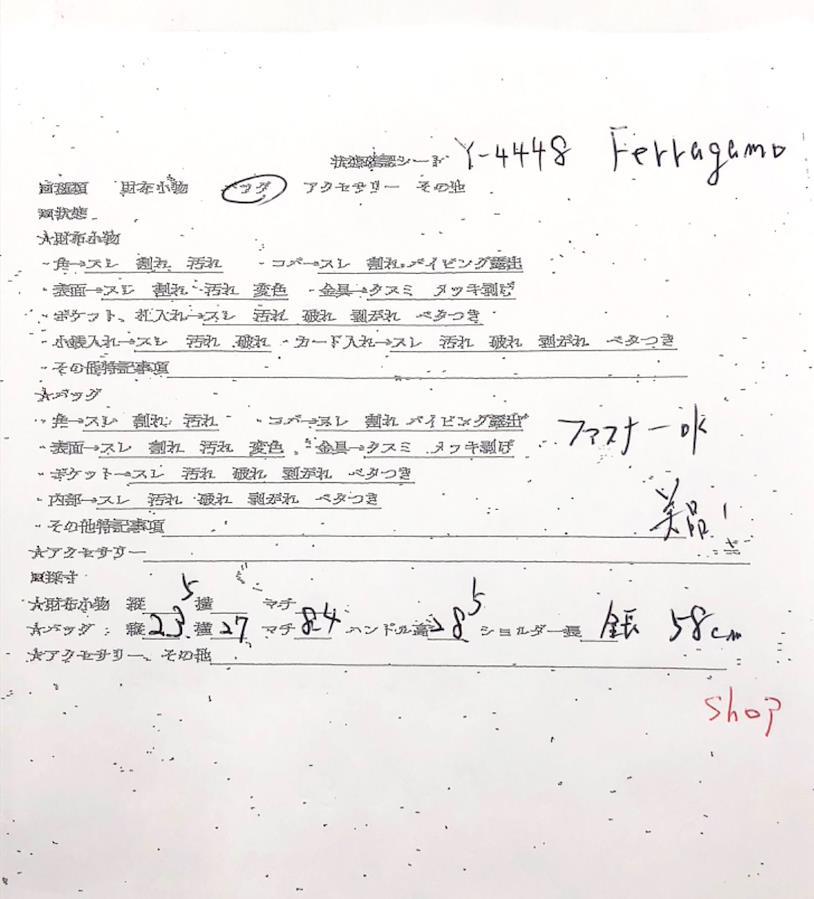 状態確認シート Y-4448 Ferragamo
■種類 財布小物 バッグ アクセサリー その他
■状態
★財布小物
・角→スレ 割れ 汚れ ・コバ→スレ 割れ パイピング露出
・表面→スレ 割れ 汚れ 変色 ・金具→クスミ メッキ剥げ
・ポケット、札入れ→スレ 汚れ 破れ 剥がれ ベタつき
・小銭入れ→スレ 汚れ 破れ ・カード入れ→スレ 汚れ 破れ 剥がれ ベタつき
・その他特記事項
★バッグ
・角→スレ 割れ 汚れ ・コバ→スレ 割れ パイピング露出
・表面→スレ 割れ 汚れ 変色 ・金具→クスミ メッキ剥げ ファスナーOK
・ポケット→スレ 汚れ 破れ 剥がれ ベタつき
・内部→スレ 汚れ 破れ 剥がれ ベタつき
・その他特記事項 美品!
★アクセサリー
■採寸
★財布小物 縦 横 マチ
★バッグ:縦23.5 横27 マチ8.4 ハンドル高28.5 ショルダー長 全長 58cm
★アクセサリー、その他
shop